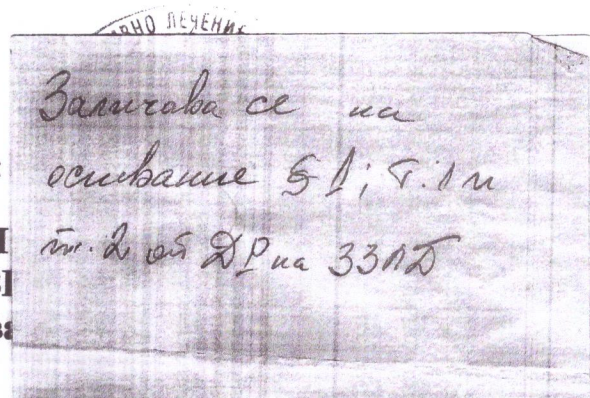 ВНО ЛЕЧЕНИЕ
Заличава се на
основание § 1; т. 1 и
т. 2 от ДР на ЗЗЛД